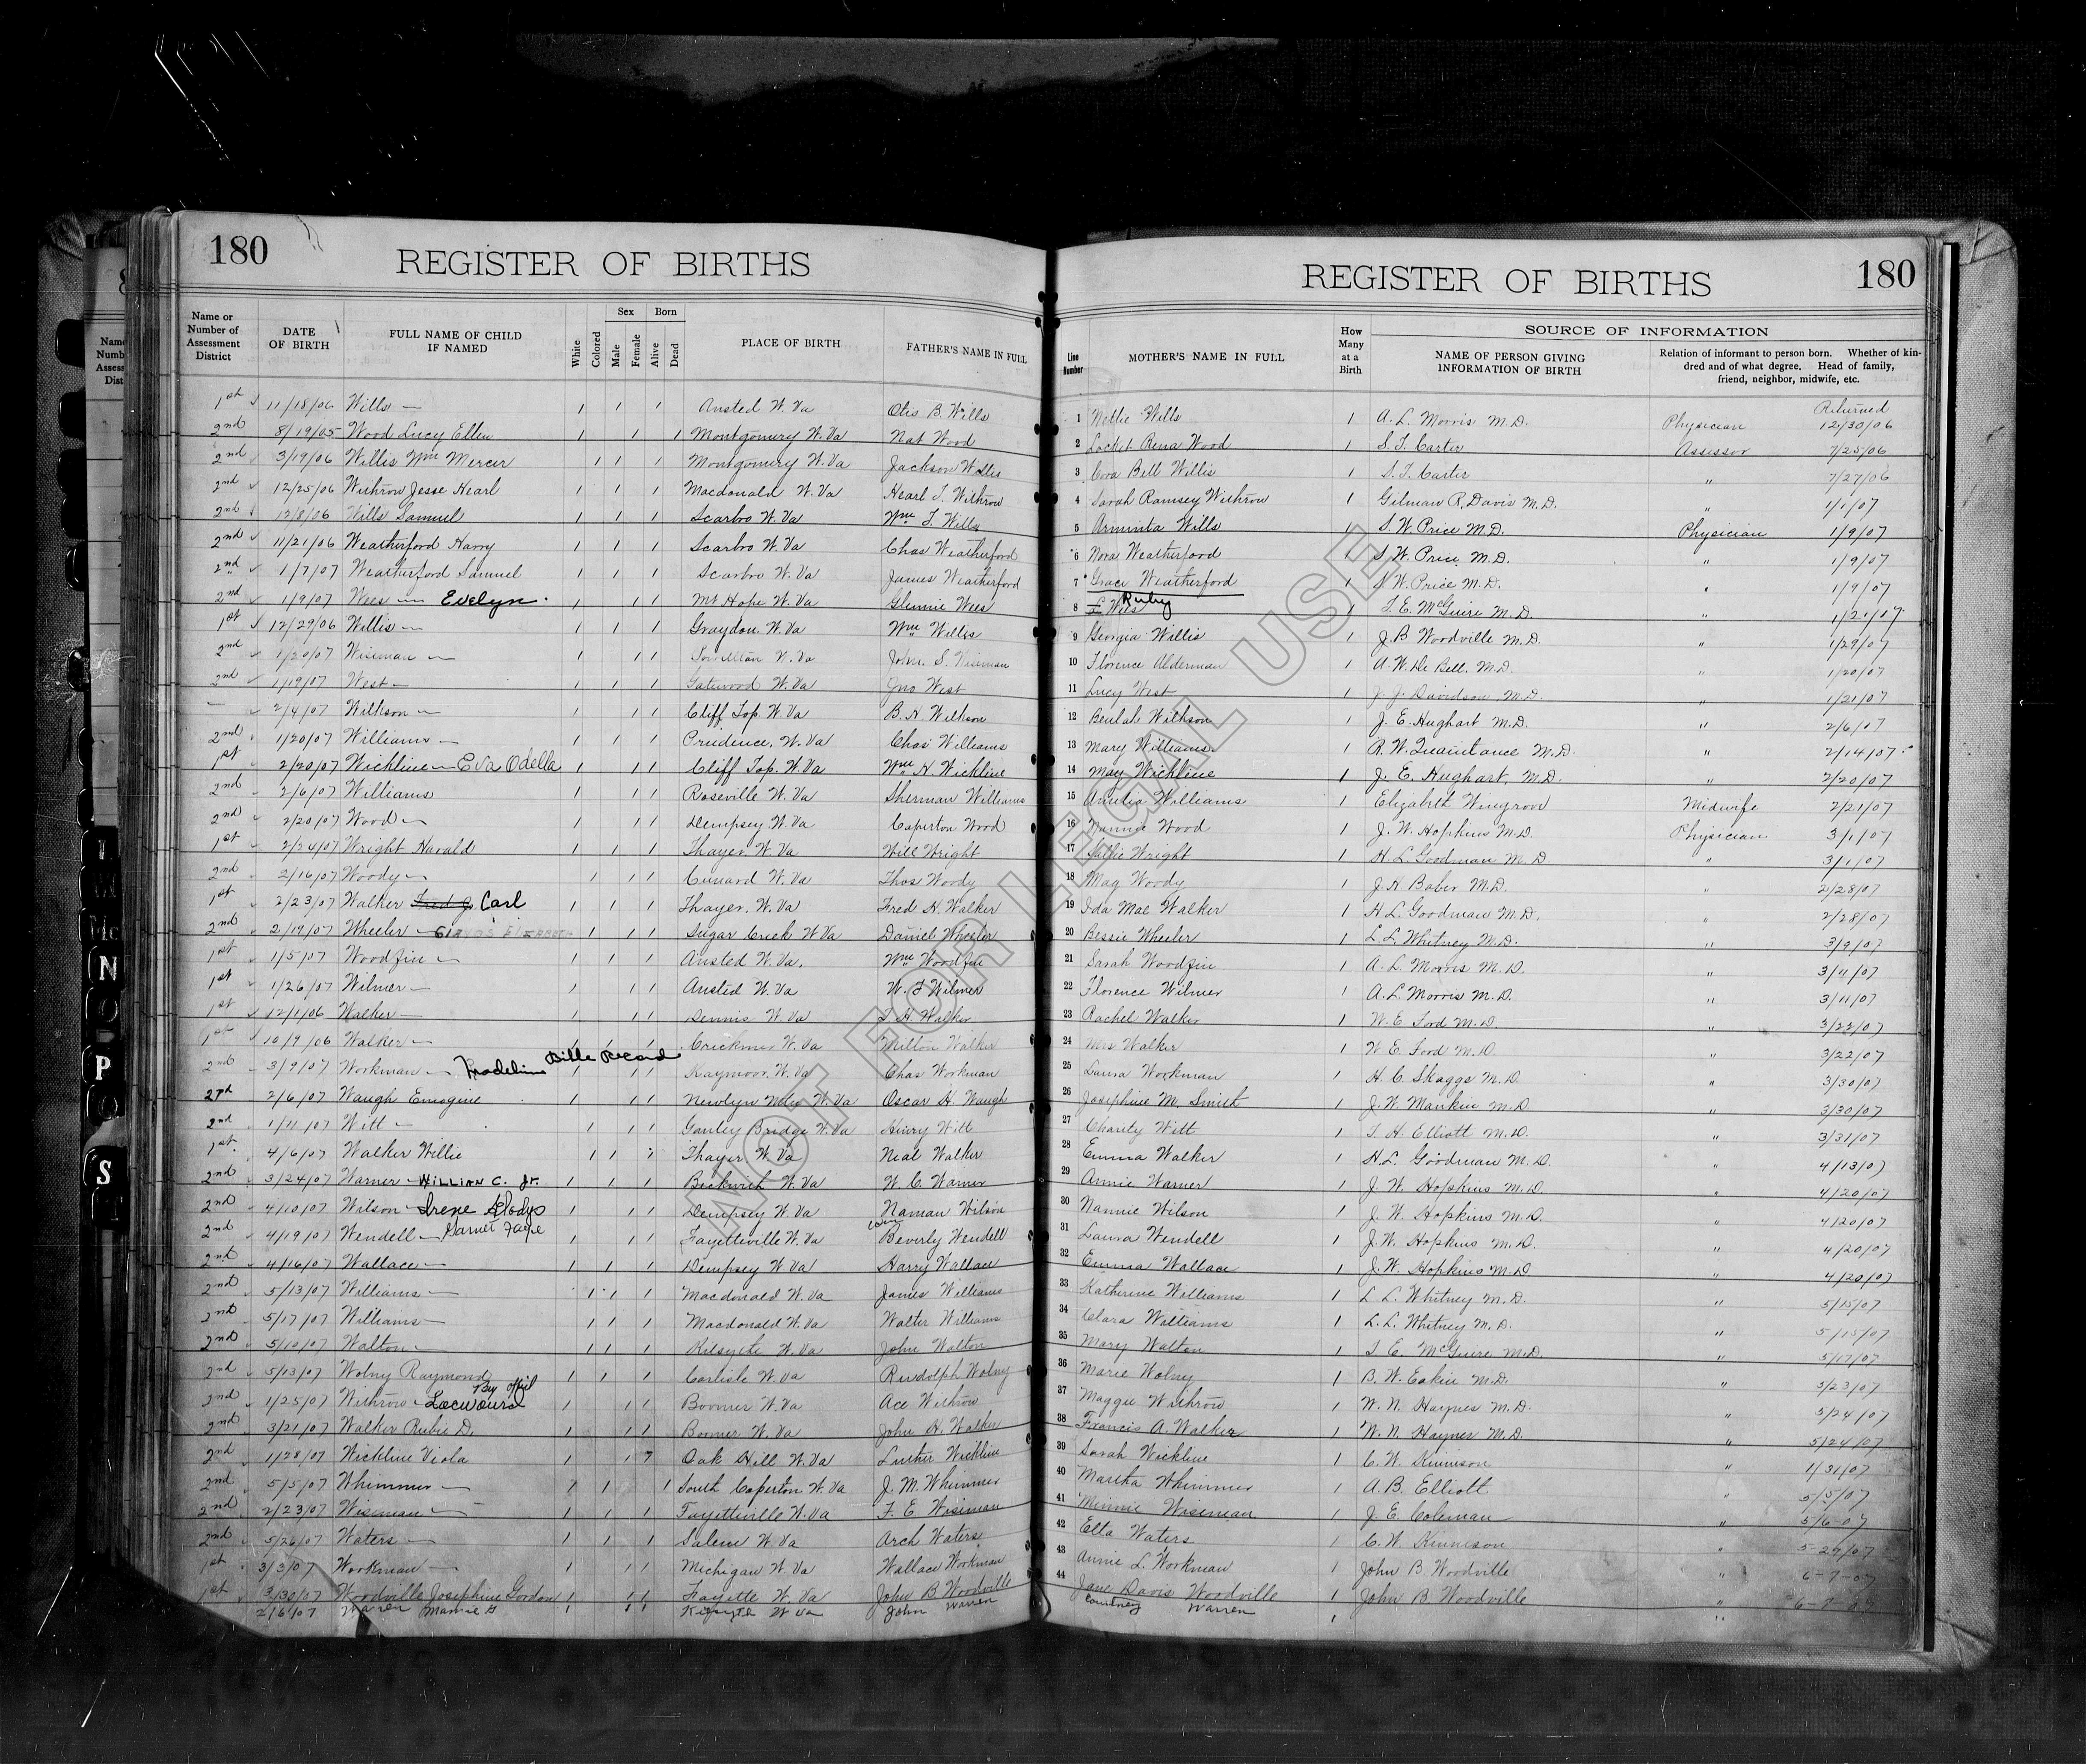 180 REGISTER OF BIRTHS REGISTER OF BIRTHS 180
Name or Number of Assessment District DATE OF BIRTH FULL NAME OF CHILD IF NAMED White Colored Sex Male Female Born Alive Dead PLACE OF BIRTH FATHER'S NAME IN FULL Line Number MOTHER'S NAME IN FULL How Many at a Birth SOURCE OF INFORMATION NAME OF PERSON GIVING INFORMATION OF BIRTH Relation of informant to person born. Whether of kindred and of what degree. Head of family, friend, neighbor, midwife, etc.
Returned
1st 11/18/06 Wills — 1 1 1 Ansted W. Va Otis B. Wills 1 Nettie Wills 1 A. L. Morris M.D. Physician 12/30/06
2nd 8/19/05 Wood Lucy Ellen 1 1 1 Montgomery W. Va Nat Wood 2 Locket Rena Wood 1 S. T. Carter Assessor 7/25/06
2nd 3/19/06 Willis Wm Mercer 1 1 1 Montgomery W. Va Jackson Willis 3 Cora Bell Willis 1 S. T. Carter " 7/27/06
2nd 12/25/06 Withrow Jesse Hearl 1 1 1 Macdonald W. Va Hearl T. Withrow 4 Sarah Ramsey Withrow 1 Gilman R. Davis M.D. " 1/1/07
2nd 12/8/06 Wills Samuel 1 1 1 Scarbro W. Va Wm T. Wills 5 Arminta Wills 1 S. W. Price M.D. Physician 1/9/07
2nd 11/21/06 Weatherford Harry 1 1 1 Scarbro W. Va Chas Weatherford 6 Nora Weatherford 1 S. W. Price M.D. " 1/9/07
2nd 1/7/07 Weatherford Samuel 1 1 1 Scarbro W. Va James Weatherford 7 Grace Weatherford 1 S. W. Price M.D. " 1/9/07
2nd 1/9/07 Wees — Evelyn 1 1 1 Mt Hope W. Va Glennie Wees 8 Wees Ruby 1 T. E. McGuire M.D. " 1/21/07
1st 12/29/06 Willis — 1 1 1 Graydon W. Va Wm Willis 9 Georgia Willis 1 J. B Woodville M.D. " 1/29/07
2nd 1/20/07 Wiseman — 1 1 1 W. Va John S. Wiseman 10 Florence Alderman 1 A. W. De Bell. M.D. " 1/20/07
2nd 1/19/07 West — 1 1 1 Gatewood W. Va Jno West 11 Lucy West 1 J. J. Davidson M.D. " 1/21/07
— 2/4/07 Wilkson — 1 1 1 Cliff Top W. Va B. H Wilkson 12 Beulah Wilkson 1 J. E. Hughart M.D. " 2/6/07
2nd 1/20/07 Williams — 1 1 1 Prudence, W. Va Chas Williams 13 Mary Williams 1 R. W. Quaintance M.D. " 2/14/07
1st 2/20/07 Wickline — Eva Odella 1 1 1 Cliff Top. W. Va Wm H Wickline 14 May Wickline 1 J. E. Hughart, M.D. " 2/20/07
2nd 2/6/07 Williams 1 1 1 Roseville W. Va Sherman Williams 15 Amelia Williams 1 Elizabeth Wingrove Midwife 2/21/07
2nd 2/20/07 Wood — 1 1 1 Dempsey. W. Va Caperton Wood 16 Nannie Wood 1 J. W. Hopkins M.D. Physician 3/1/07
1st 2/24/07 Wright Harald 1 1 1 Thayer W. Va Will Wright 17 Sallie Wright 1 H. L. Goodman M.D " 3/1/07
2nd 2/16/07 Woody — 1 1 1 Cunard W. Va Thos Woody 18 Mag Woody 1 J. H Baber M.D. " 2/28/07
1st 2/23/07 Walker Fred J. Carl 1 1 1 Thayer, W. Va Fred H. Walker 19 Ida Mae Walker 1 H. L. Goodman M.D. " 2/28/07
2nd 2/19/07 Wheeler — 1 1 1 Sugar Creek W Va Daniel Wheeler 20 Bessie Wheeler 1 L. L. Whitney M.D. " 3/9/07
1st 1/5/07 Woodfin — 1 1 1 Ansted W. Va. Wm Woodfin 21 Sarah Woodfin 1 A. L. Morris M.D. " 3/4/07
1st 1/26/07 Wilmer — 1 1 1 Ansted W. Va W. F Wilmer 22 Florence Wilmer 1 A. L. Morris M.D. " 3/11/07
1st 12/1/06 Walker — 1 1 1 Dennis W. Va Walker 23 Rachel Walker 1 W. E. Ford M.D. " 3/22/07
1st 10/9/06 Walker — 1 1 1 Crickmer W. Va Milton Walker 24 Mrs Walker 1 W E. Ford M.D. " 3/22/07
2nd 3/9/07 Workman — Madeline Bible Record 1 1 Kaymoor W. Va Chas Workman 25 Laura Workman 1 H. C. Skaggs M.D. " 3/30/07
2nd 2/6/07 Waugh Emogine 1 1 1 Newlyn W. Va Oscar H Waugh 26 Josephine M. Smith 1 J. W. Mankin M.D. " 3/30/07
2nd 1/11/07 Witt — 1 1 1 Gauley Bridge W. Va Henry Witt 27 Charity Witt 1 T. H. Elliott M.D. " 3/31/07
1st 4/6/07 Walker Willie 1 1 1 Thayer W. Va Neal Walker 28 Emma Walker 1 H. L. Goodman M.D. " 4/13/07
2nd 3/24/07 Warner — WILLIAN C. Jr. 1 1 1 Beckwith W. Va W. C. Warner 29 Annie Warner 1 J. W. Hopkins M.D. " 4/20/07
2nd 4/10/07 Wilson — Irene Gladys 1 1 1 Dempsey W. Va Naman Wilson 30 Nannie Wilson 1 J. W. Hopkins M.D. " 4/20/07
2nd 4/19/07 Wendell — Garnet Faye 1 1 1 Fayetteville W. Va Beverly Wendell 31 Laura Wendell 1 J. W. Hopkins M.D. " 4/20/07
2nd 4/16/07 Wallace — 1 1 1 Dempsey W. Va Harry Wallace 32 Emma Wallace 1 J. W. Hopkins M.D " 4/20/07
2nd 5/13/07 Williams — 1 1 1 Macdonald W. Va James Williams 33 Katherine Williams 1 L. L. Whitney M.D. " 5/15/07
2nd 5/17/07 Williams — 1 1 1 Macdonald W. Va Walter Williams 34 Clara Williams 1 L. L. Whitney M.D. " 5/15/07
2nd 5/10/07 Walton — 1 1 1 Kilsyth W. Va John Walton 35 Mary Walton 1 T. E. McGuire M.D. " 5/17/07
2nd 5/13/07 Wolny Raymond 1 1 1 Carlisle W. Va Rudolph Wolny 36 Marie Wolny 1 B. W. Eakin M.D. " 5/23/07
2nd 1/25/07 Withrow — 1 1 1 Boomer W. Va Ace Withrow 37 Maggie Withrow 1 W. N. Haynes M.D. " 5/24/07
2nd 3/21/07 Walker Rubie D. 1 1 1 Boomer W. Va John H. Walker 38 Francis A. Walker 1 W. N. Haynes M.D. " 5/24/07
2nd 1/28/07 Wickline Viola 1 1 Oak Hill W. Va Luther Wickline 39 Sarah Wickline 1 C. W. Kinnison " 1/31/07
2nd 5/5/07 Whimmer — 1 1 1 South Caperton W. Va J. M. Whimmer 40 Martha Whimmer 1 A. B. Elliott " 5/5/07
2nd 2/23/07 Wiseman — 1 1 1 Fayetteville W. Va F. E. Wiseman 41 Minnie Wiseman 1 J. E. Coleman " 5/6-07
2nd 5/26/07 Waters — 1 1 1 Salem W. Va Arch Waters 42 Etta Waters 1 C. W. Kinnison " 5-29/07
1st 3/3/07 Workman — 1 1 1 Michigan W. Va Wallace Workman 43 Annie L. Workman 1 John B. Woodville " 6-7-07
1st 3/30/07 Woodville Josephine Gordon 1 1 1 Fayette W. Va John B Woodville 44 Jane Davis Woodville 1 John B. Woodville "
2/6/07 Warren Mamie G 1 1 1 Kilsyth W Va John Warren Courtney Warren 1 "
NOT FOR LEGAL USE
N
P
S